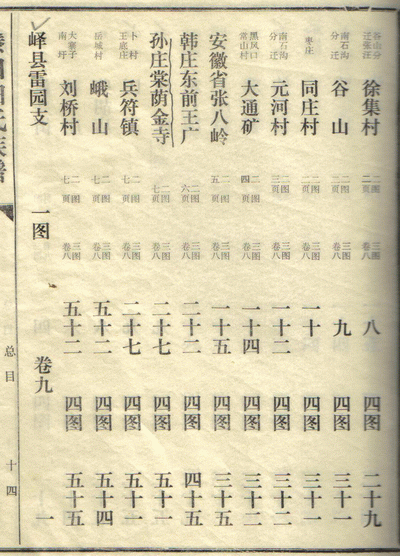 谷山分迁张汪 徐集村 二图二页 三图卷八 八 四图 二十九
南石沟分迁 谷山 二图二页 三图卷八 九 四图 三十
枣庄 同庄村 二图 三图卷八 十 四图 三十一
南石沟分迁 元河村 二图三页 三图卷八 十二 四图 三十二
黑风口常山村 大通矿 二图四页 三图卷八 十四 四图 三十三
安徽省张八岭 二图五 三图卷八 十五 四图 三十五
韩庄东前王广 二图六页 三图卷八 二十二 四图 四十五
孙庄棠荫金寺 二图七页 三图卷八 二十七 四图 五十一
卜村王底庄 兵符镇 二图七页 三图卷八 二十七 四图 五十一
岳城村 峨山 二图七页 三图卷八 五十二 四图 五十四
大寨子南圩 刘桥村 二图七页 三图卷八 五十二 四图 五十五
峄县雷园支 一图 卷九 一
总目 十四